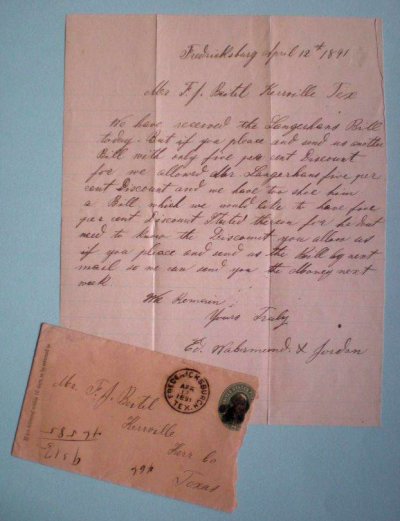 Fredricksburg April 12th 1891
Mr F. J. Bertel Kerrville Tex
We have received the Langerhans Bill
today. But if you pleace and send us another
Bill with only five per cent Discount
for we allowed Mr Langerhans five per
cent Discount and we have too shoe him
a Bill, which we would like to have five
per cent Discount Stated thereon for he dont
need to know the Discount you allow us
if you pleace and send us the Bill by next
mail so we can send you the Money next
week
We Remain;
Yours Truly
Ed. & Jordan
Mr. F. J. Bertel
Kerrville
Kerr Co
Texas
FREDERICKSBURGH
APR
1891
TEX.